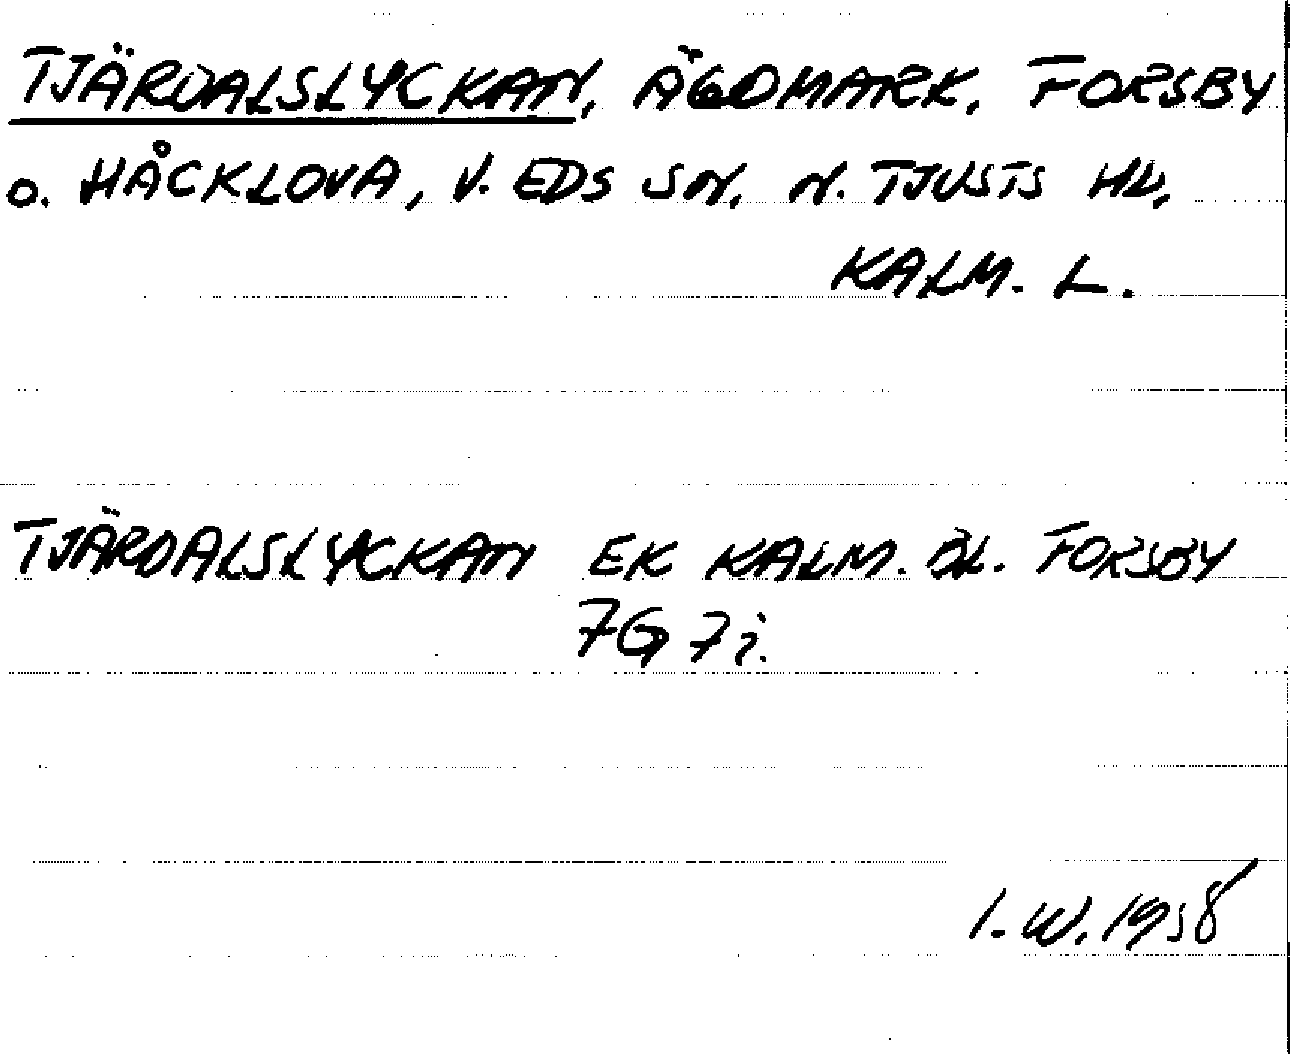 TJÄRDALSLYCKAN, ÄGOMARK, FORSBY
o. HÅCKLOVA, V. EDS SN, N. TJUSTS HD,
KALM. L.
TJÄRDALSLYCKAN EK KALM. BL. FORSBY
7G 7i.
I. W. 1958